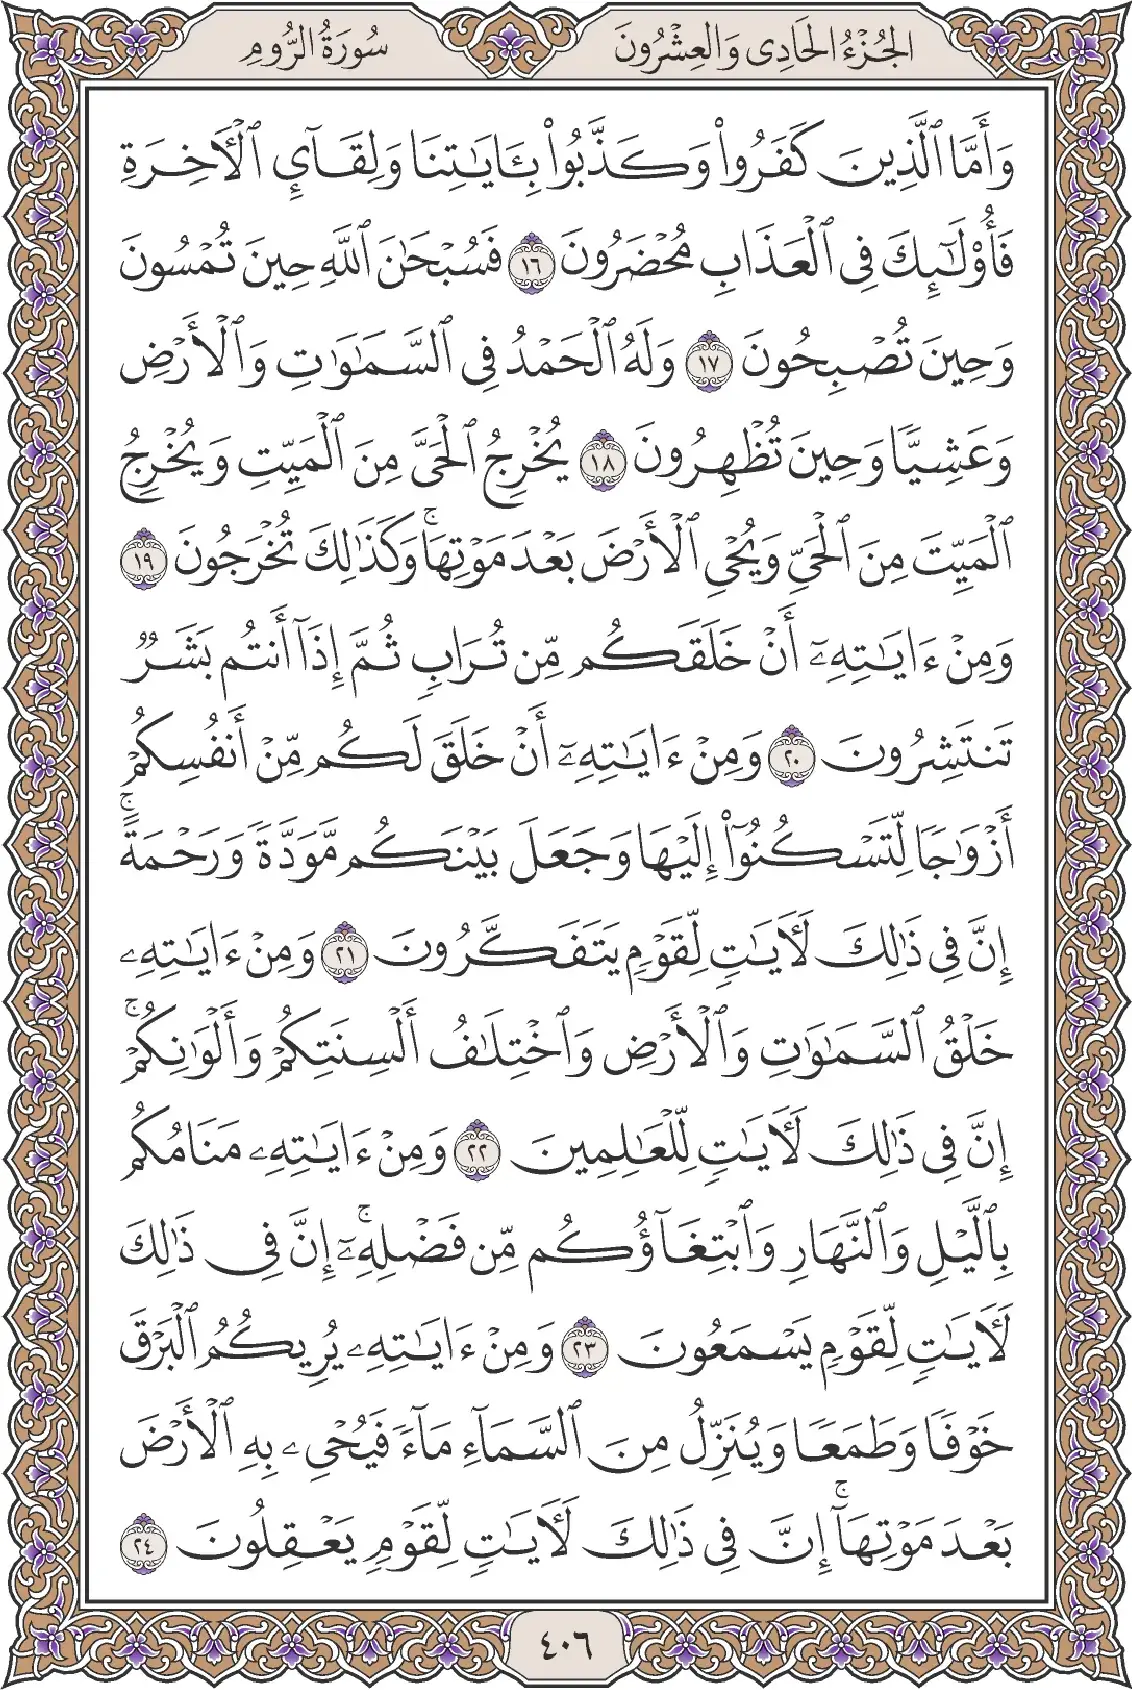 الجُزْءُ الحَادِى وَالعِشْرُونَ
سُورَةُ الرُّومِ
وَأَمَّا ٱلَّذِينَ كَفَرُواْ وَكَذَّبُواْ بِـَٔايَٰتِنَا وَلِقَآيِٕ ٱلْأٓخِرَةِ
فَأُوْلَٰٓئِكَ فِى ٱلْعَذَابِ مُحْضَرُونَ ١٦ فَسُبْحَٰنَ ٱللَّهِ حِينَ تُمْسُونَ
وَحِينَ تُصْبِحُونَ ١٧ وَلَهُ ٱلْحَمْدُ فِى ٱلسَّمَٰوَٰتِ وَٱلْأَرْضِ
وَعَشِيًّا وَحِينَ تُظْهِرُونَ ١٨ يُخْرِجُ ٱلْحَىَّ مِنَ ٱلْمَيِّتِ وَيُخْرِجُ
ٱلْمَيِّتَ مِنَ ٱلْحَىِّ وَيُحْىِ ٱلْأَرْضَ بَعْدَ مَوْتِهَا ۚ وَكَذَٰلِكَ تُخْرَجُونَ ١٩
وَمِنْ ءَايَٰتِهِۦٓ أَنْ خَلَقَكُم مِّن تُرَابٍ ثُمَّ إِذَآ أَنتُم بَشَرٌ
تَنتَشِرُونَ ٢٠ وَمِنْ ءَايَٰتِهِۦٓ أَنْ خَلَقَ لَكُم مِّنْ أَنفُسِكُمْ
أَزْوَٰجًا لِّتَسْكُنُوٓاْ إِلَيْهَا وَجَعَلَ بَيْنَكُم مَّوَدَّةً وَرَحْمَةً ۚ
إِنَّ فِى ذَٰلِكَ لَأٓيَٰتٍ لِّقَوْمٍ يَتَفَكَّرُونَ ٢١ وَمِنْ ءَايَٰتِهِۦ
خَلْقُ ٱلسَّمَٰوَٰتِ وَٱلْأَرْضِ وَٱخْتِلَٰفُ أَلْسِنَتِكُمْ وَأَلْوَٰنِكُمْ ۚ
إِنَّ فِى ذَٰلِكَ لَأٓيَٰتٍ لِّلْعَٰلِمِينَ ٢٢ وَمِنْ ءَايَٰتِهِۦ مَنَامُكُم
بِٱلَّيْلِ وَٱلنَّهَارِ وَٱبْتِغَآؤُكُم مِّن فَضْلِهِۦٓ ۚ إِنَّ فِى ذَٰلِكَ
لَأٓيَٰتٍ لِّقَوْمٍ يَسْمَعُونَ ٢٣ وَمِنْ ءَايَٰتِهِۦ يُرِيكُمُ ٱلْبَرْقَ
خَوْفًا وَطَمَعًا وَيُنَزِّلُ مِنَ ٱلسَّمَآءِ مَآءً فَيُحْىِۦ بِهِ ٱلْأَرْضَ
بَعْدَ مَوْتِهَآ ۚ إِنَّ فِى ذَٰلِكَ لَأٓيَٰتٍ لِّقَوْمٍ يَعْقِلُونَ ٢٤
٤٠٦